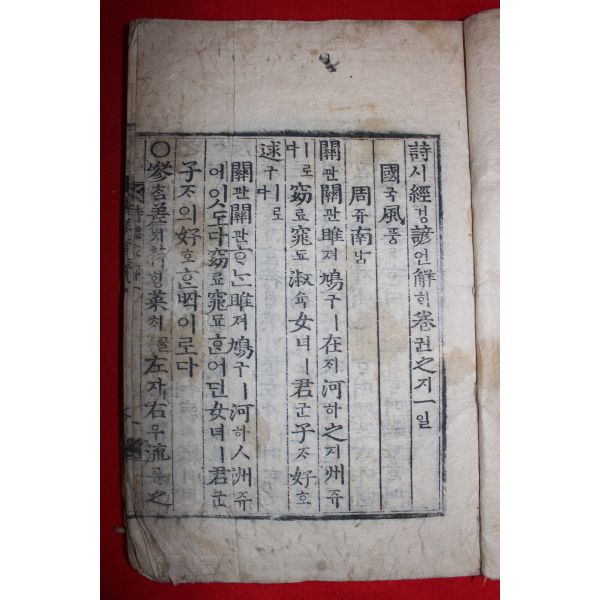 詩시經경諺언解ᄒᆡ卷권之지一일
國국風풍
周쥬南남
關관關관雎져鳩구ㅣ在ᄌᆡ河하之지洲쥬
ㅣ로다窈요窕됴淑슉女녀ㅣ君군子ᄌᆞ好호
逑구ㅣ로다
關관關관ᄒᆞᆫ雎져鳩구ㅣ河하人洲쥬
에잇도다窈요窕됴ᄒᆞᆫ어딘女녀ㅣ君군
子ᄌᆞ의好호ᄒᆞᆫᄧᅡᆨ이로다
○參참差치荇ᄒᆡᆼ菜ᄎᆡ를左자右우流류之